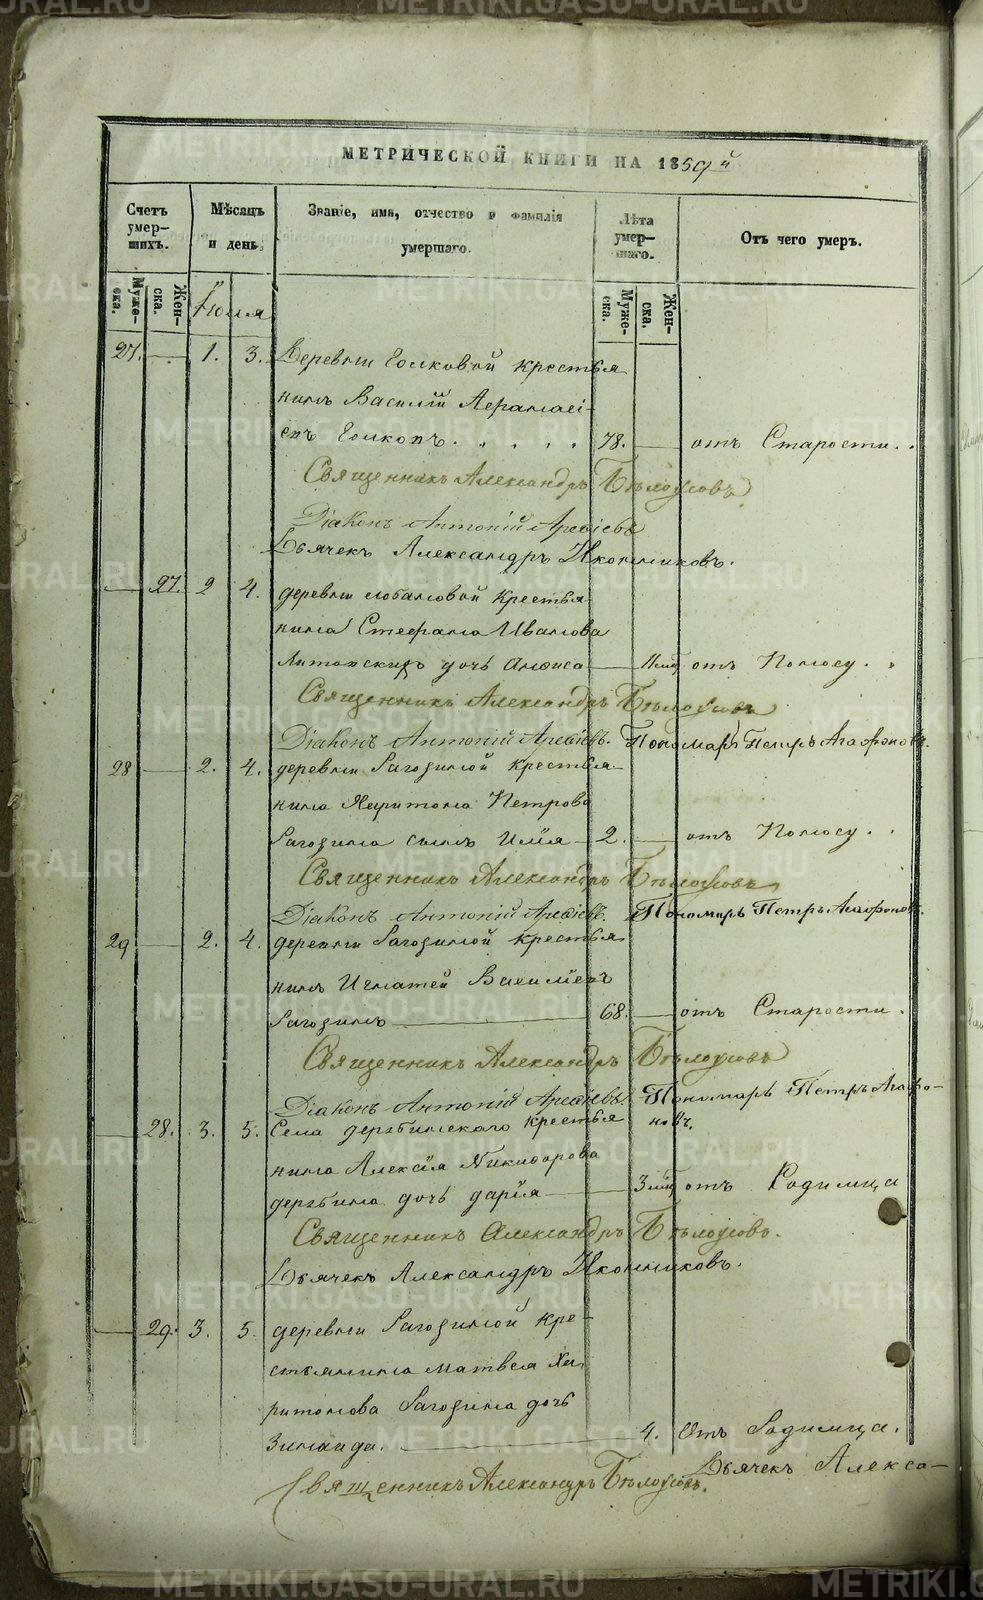 METRIKI.GASO-URAL.RU
МЕТРИЧЕСКОЙ КНИГИ НА 1859й
Счетъ умер-шихъ.
Мѣсяцъ и день.
Званіе, имя, отчество и фамилія умершаго.
Лѣта умер-шаго.
Отъ чего умеръ.
Муже-ска.
Жен-ска.
Іюля
Муже-ска.
Жен-ска.
27. 1. 3. Деревни крестья
нинъ Василій
78. отъ Старости.
Священникъ Александръ Бѣлоусовъ
Діаконъ Антоній Арефіевъ
Дьячекъ Александръ Иконниковъ.
27. 2 4. деревни Лобановой Крестья
нина Стефана Иванова
дочь отъ Поносу.
Священникъ Александръ Бѣлоусовъ
Діаконъ Антоній Арефіевъ. Пономарь Петръ Агафоновъ.
28 2. 4. деревни Рагозиной крестья
нина Харитона Петрова
Рагозина сынъ Илія 2. отъ Поносу.
Священникъ Александръ Бѣлоусовъ
Діаконъ Антоній Арефіевъ. Пономарь Петръ Агафоновъ.
29 2. 4. деревни Рагозиной крестья
нинъ Игнатей Васильевъ
Рагозинъ 68. отъ Старости.
Священникъ Александръ Бѣлоусовъ
Діаконъ Антоній Арефіевъ. Пономарь Петръ Агафо-
новъ.
28. 3. 5. Села дерябинскаго крестья
нина Алексія Никифорова
дерябина дочь дарія отъ Родимца
Священникъ Александръ Бѣлоусовъ.
Дьячекъ Александръ Иконниковъ.
29. 3. 5. деревни Рагозиной кре-
стьянина Матвея Ха
ритонова Рагозина дочь
Зинаида. 4. Отъ Родимца.
Священникъ Александръ Бѣлоусовъ. Дьячекъ Алекса-